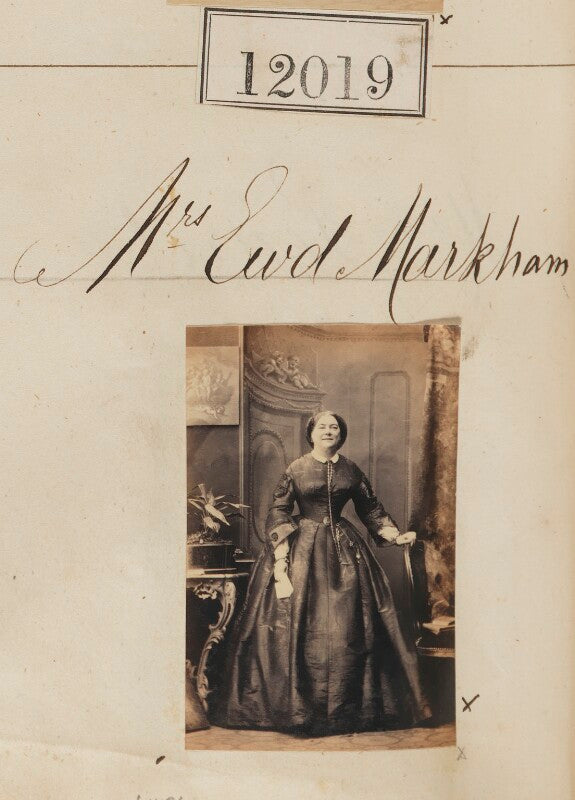 12019
Mrs Ewd Markham